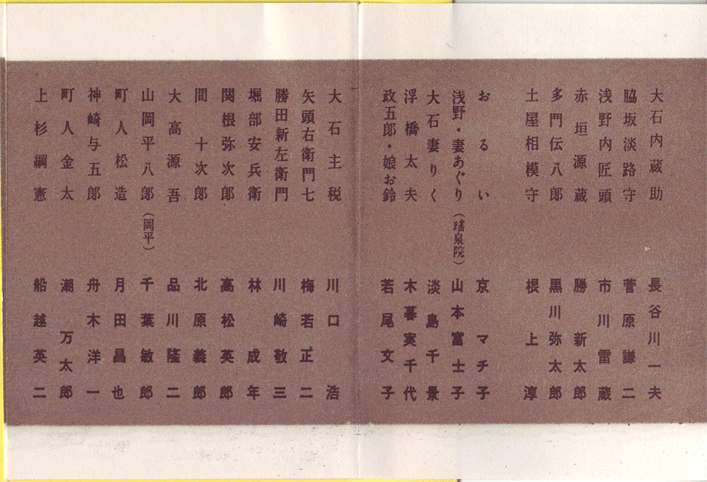 大石内蔵助 長谷川一夫
脇坂淡路守 菅原謙二
浅野内匠頭 市川雷蔵
赤垣源蔵 勝新太郎
多門伝八郎 黒川弥太郎
土屋相模守 根上淳
おるい 京マチ子
浅野・妻あぐり（瑤泉院） 山本富士子
大石妻りく 淡島千景
浮橋太夫 木暮実千代
政五郎・娘お鈴 若尾文子
大石主税 川口浩
矢頭右衛門七 梅若正二
勝田新左衛門 川崎敬三
堀部安兵衛 林成年
関根弥次郎 高松英郎
間十次郎 北原義郎
大高源吾 品川隆二
山岡平八郎（岡平） 千葉敏郎
町人松造 月田昌也
神崎与五郎 舟木洋一
町人金太 潮万太郎
上杉綱憲 船越英二